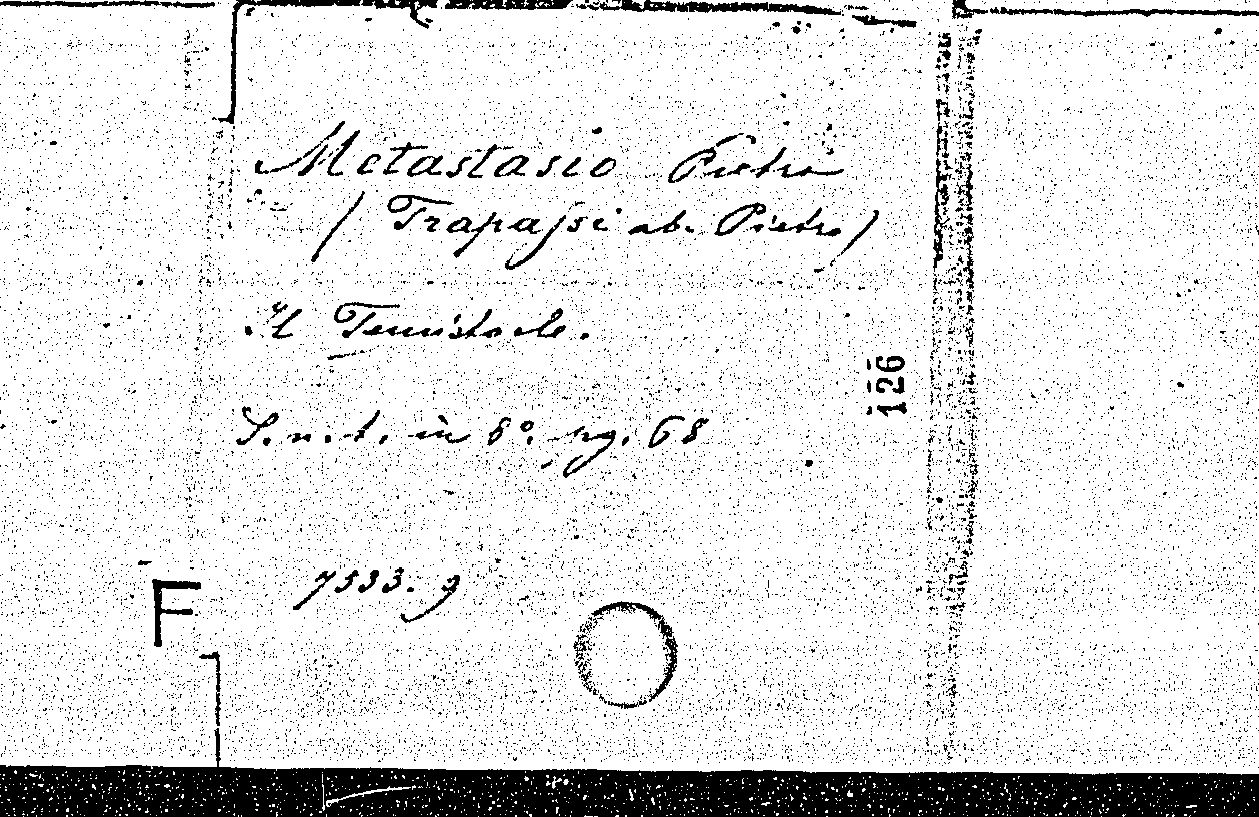 Metastasio Pietro
(Trapassi ab. Pietro)
Il Temistocle.
S. n. t. in 8°. pg. 68
126
F
7533. 9